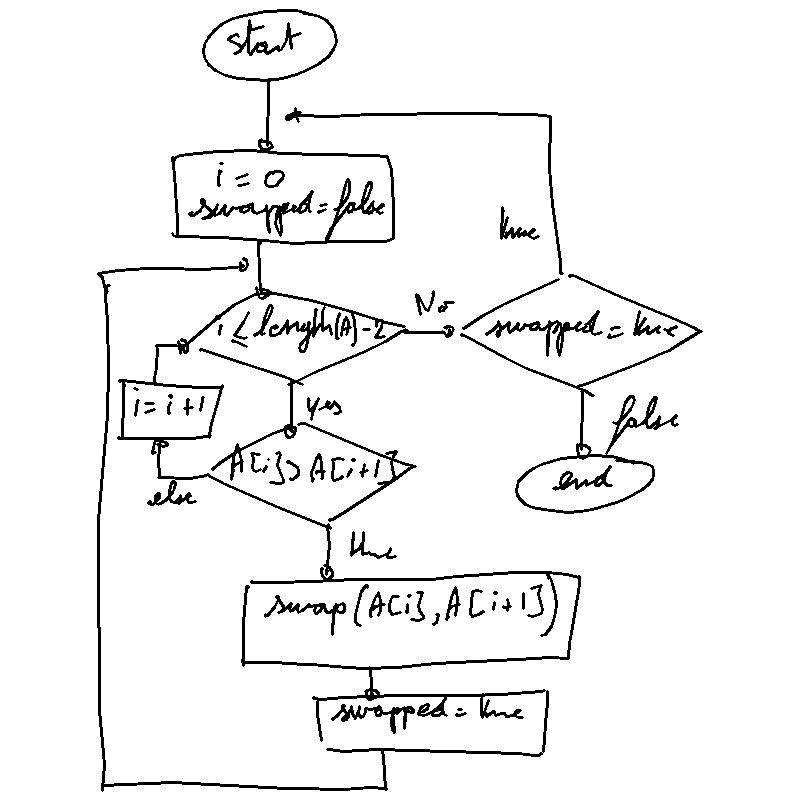 start
i = 0
swapped = false
i ≤ length(A)-2
No
swapped = true
true
i = i + 1
Yes
false
A[i] > A[i+1]
end
else
true
swap(A[i], A[i+1])
swapped = true